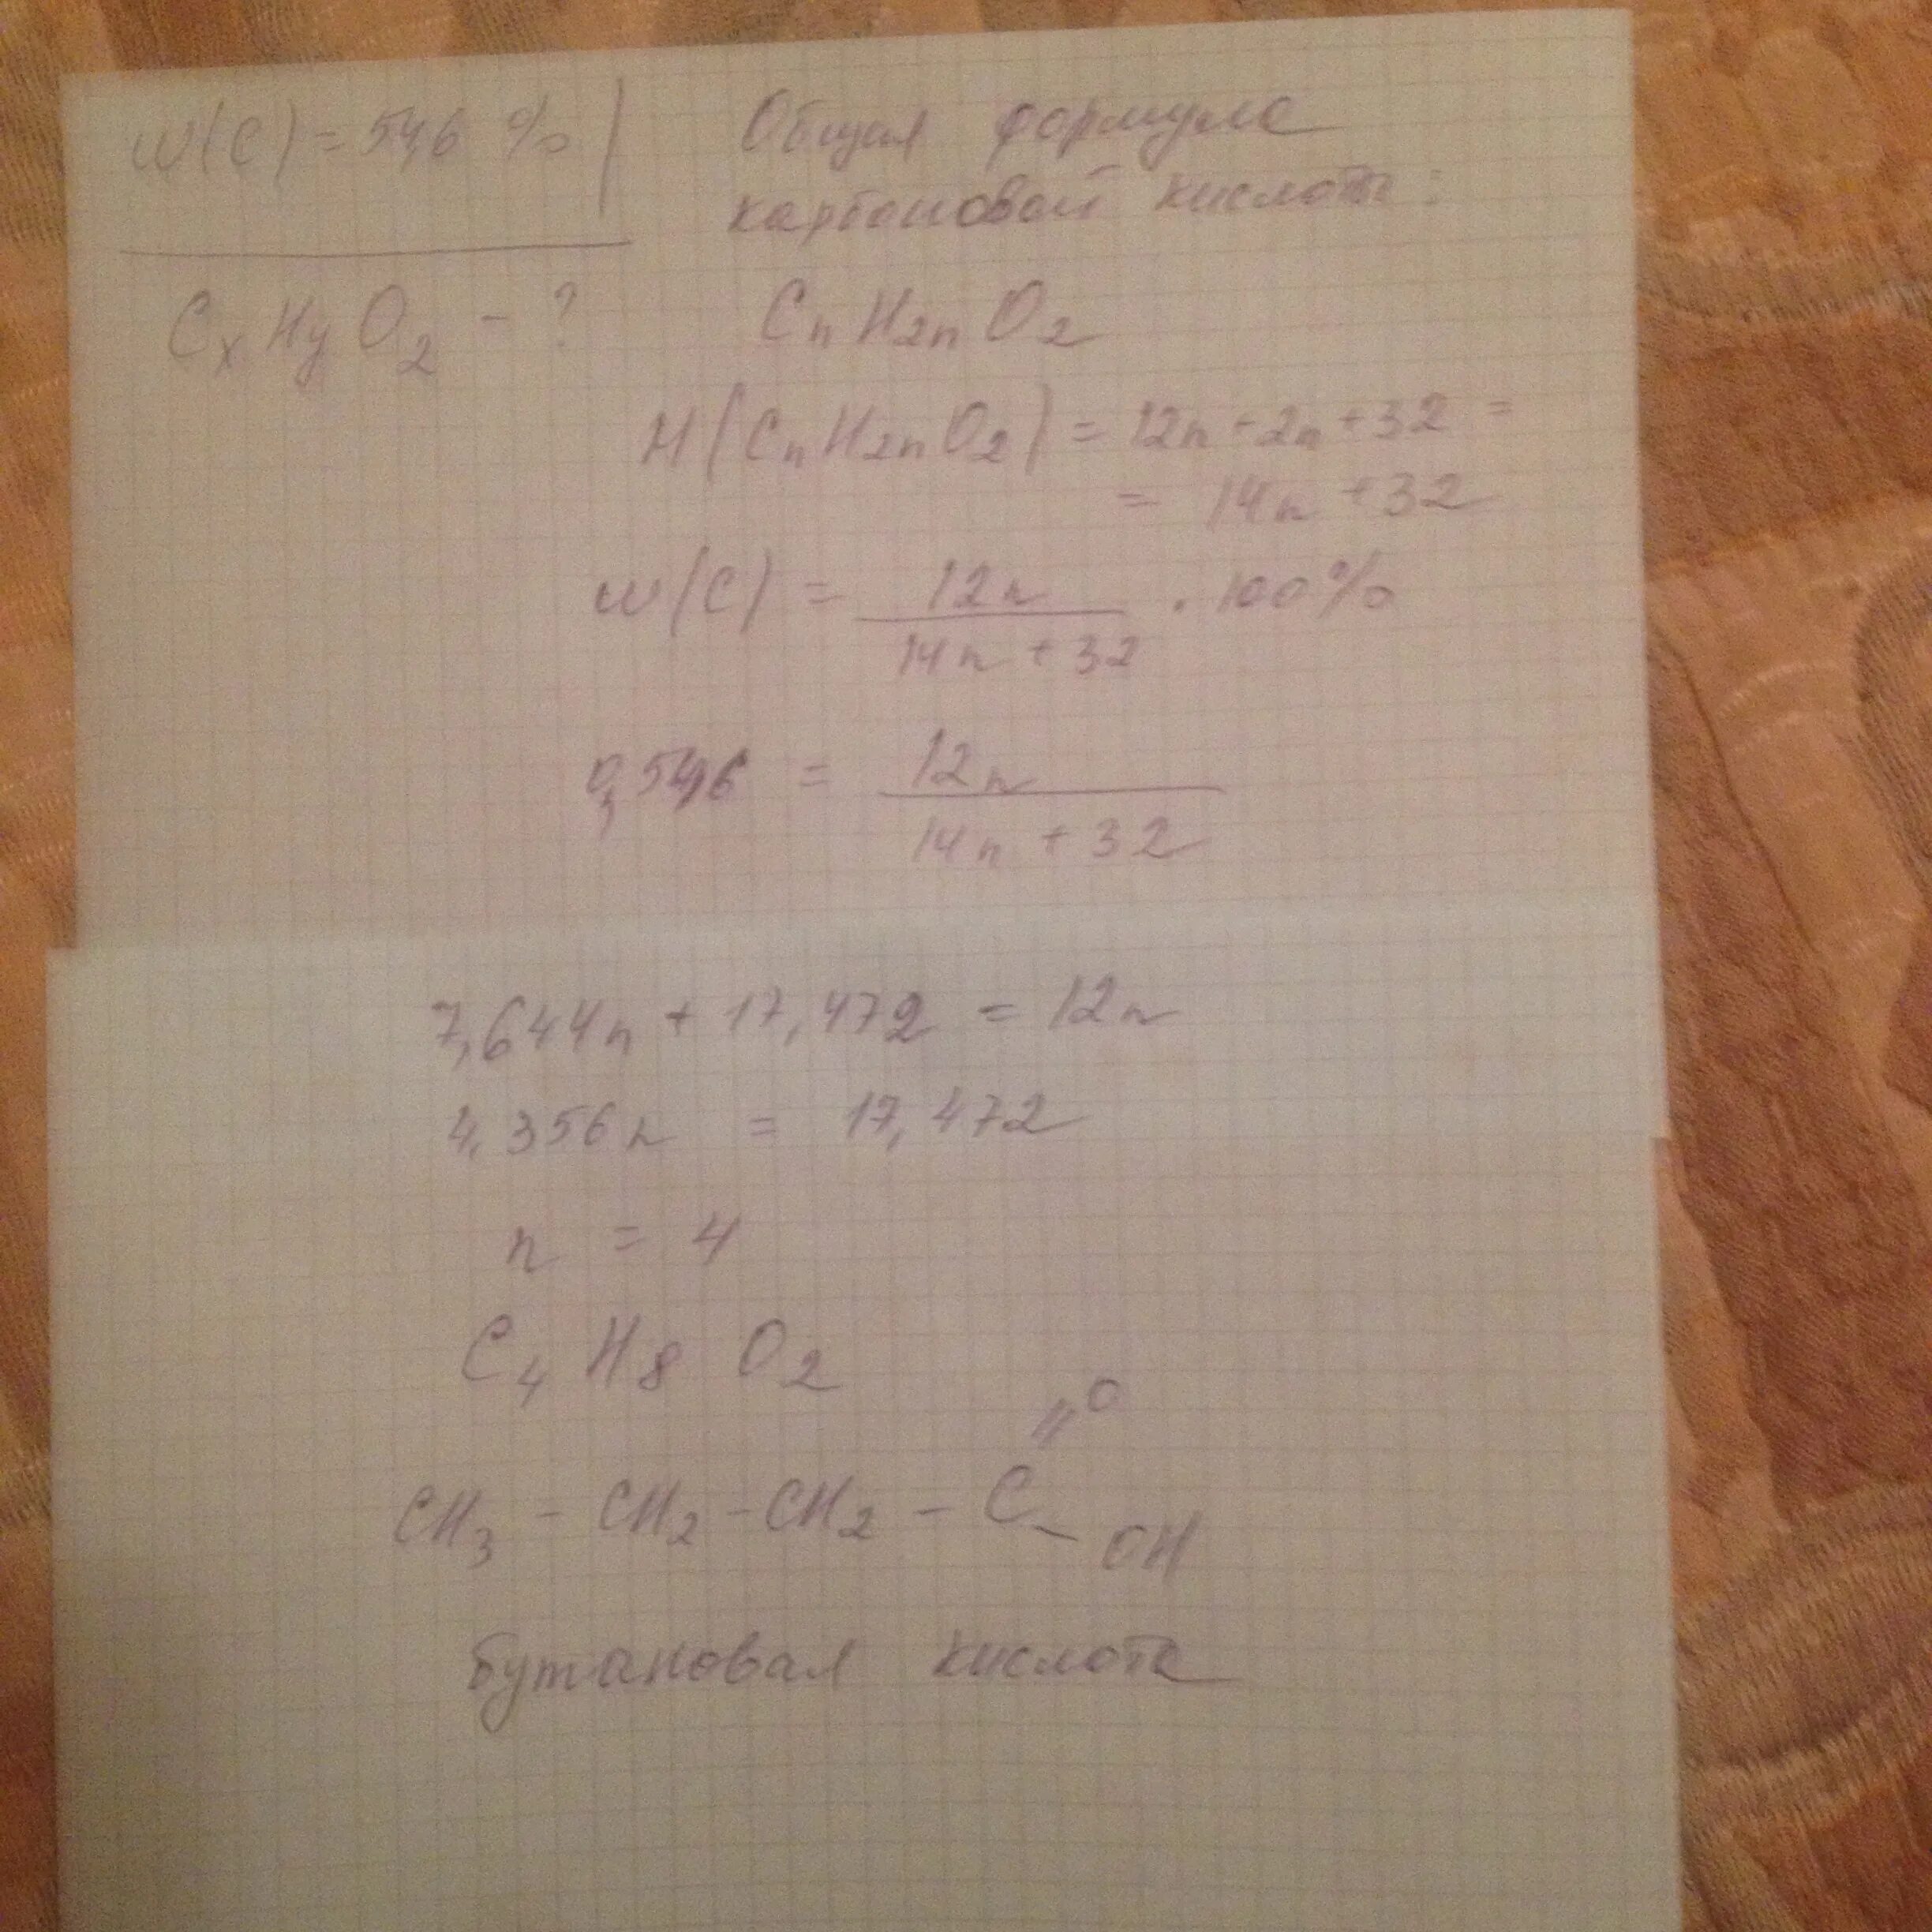 w(C) = 54,6 %
Общая формула
карбоновой кислоты:
CxHyO2 - ?
CnH2nO2
M(CnH2nO2) = 12n + 2n + 32 =
= 14n + 32
w(C) = 12n / 14n + 32 · 100%
0,546 = 12n / 14n + 32
7,644n + 17,472 = 12n
4,356n = 17,472
n = 4
C4 H8 O2
O
CH3 - CH2 - CH2 - C
OH
бутановая кислота